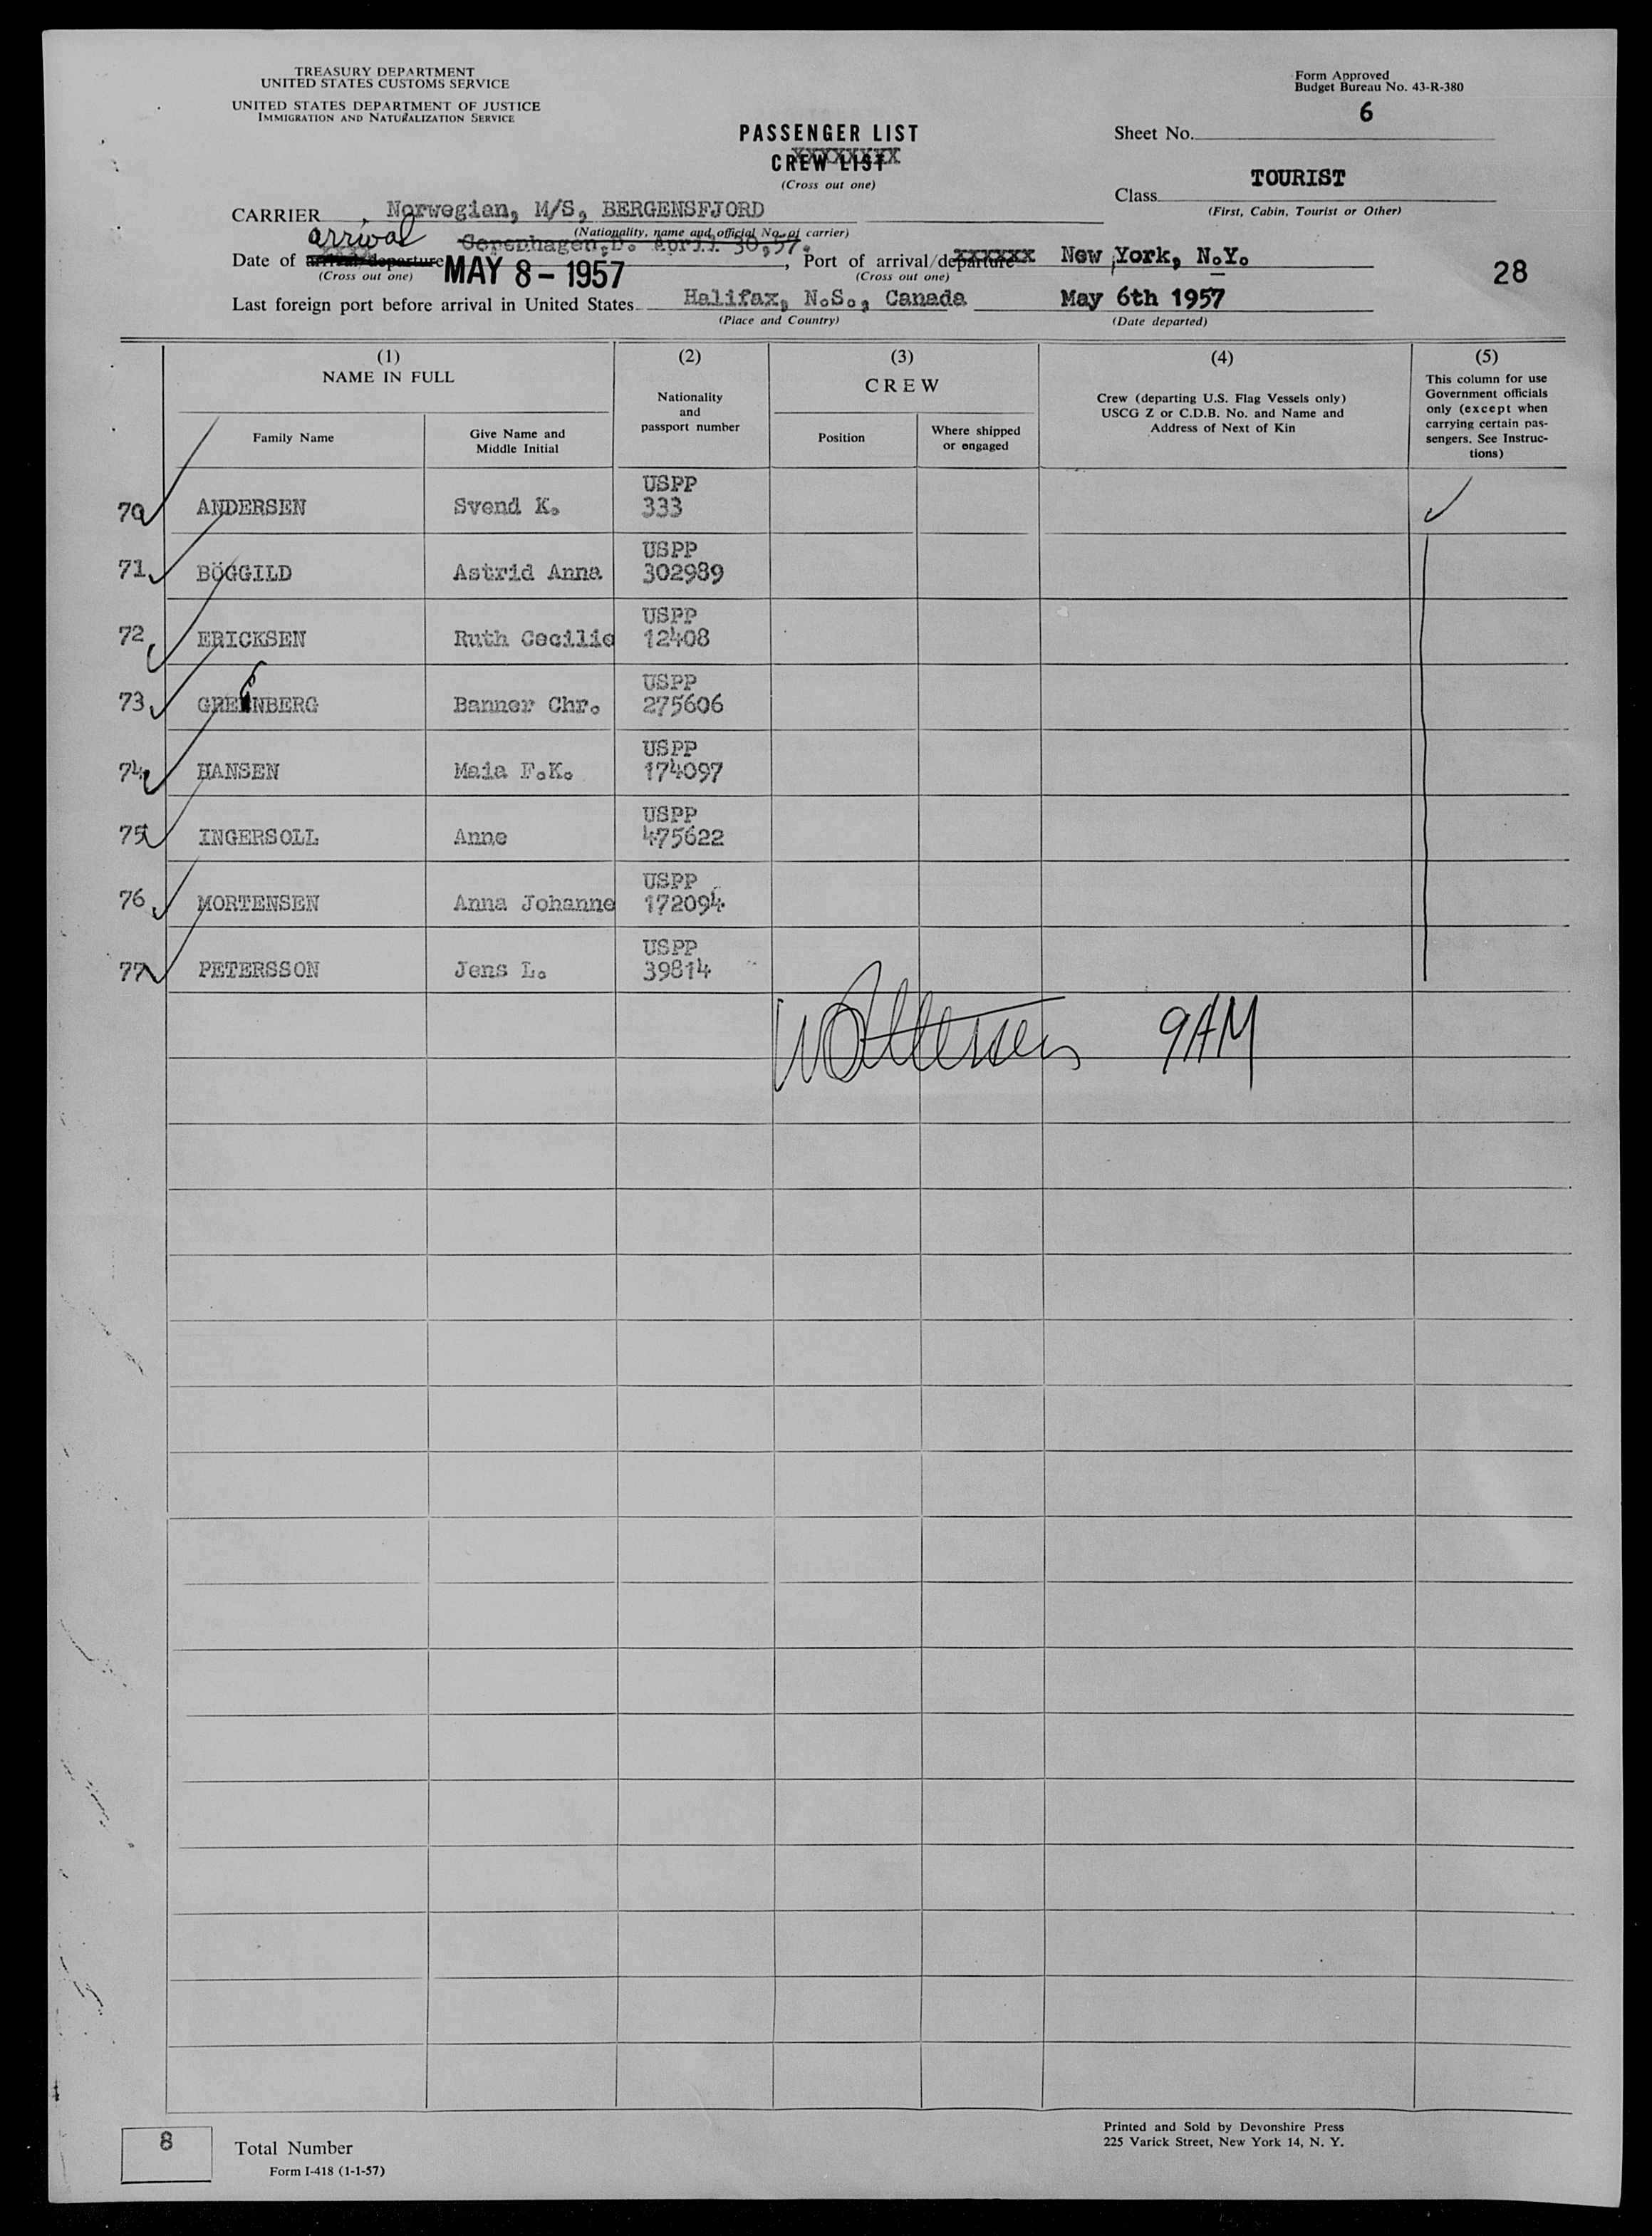 TREASURY DEPARTMENT
UNITED STATES CUSTOMS SERVICE
UNITED STATES DEPARTMENT OF JUSTICE
IMMIGRATION AND NATURALIZATION SERVICE
Form Approved
Budget Bureau No. 43-R-380
PASSENGER LIST
CREW LIST
(Cross out one)
Sheet No. 6
Class TOURIST
(First, Cabin, Tourist or Other)
CARRIER Norwegian, M/S, BERGENSFJORD
(Nationality, name and official No. of carrier)
arrival Copenhagen,D. April 30,57.
Date of arrival/departure MAY 8 - 1957, Port of arrival/departure New York, N.Y.
(Cross out one) (Cross out one)
28
Last foreign port before arrival in United States Halifax, N.S., Canada May 6th 1957
(Place and Country) (Date departed)
(1) (2) (3) (4) (5)
NAME IN FULL
Family Name
Give Name and
Middle Initial
Nationality
and
passport number
CREW
Position
Where shipped
or engaged
Crew (departing U.S. Flag Vessels only)
USCG Z or C.D.B. No. and Name and
Address of Next of Kin
This column for use
Government officials
only (except when
carrying certain pas-
sengers. See Instruc-
tions)
USPP
70 ANDERSEN Svend K. 333
USPP
71 BÖGGILD Astrid Anna 302989
USPP
72 ERICKSEN Ruth Cecilie 12408
USPP
73 Banner Chr. 275606
USPP
74 HANSEN Maia F.K. 174097
USPP
75 INGERSOLL Anne 475622
USPP
76 MORTENSEN Anna Johanne 172094
USPP
77 PETERSSON Jens L. 39814
9AM
8 Total Number
Form I-418 (1-1-57)
Printed and Sold by Devonshire Press
225 Varick Street, New York 14, N. Y.